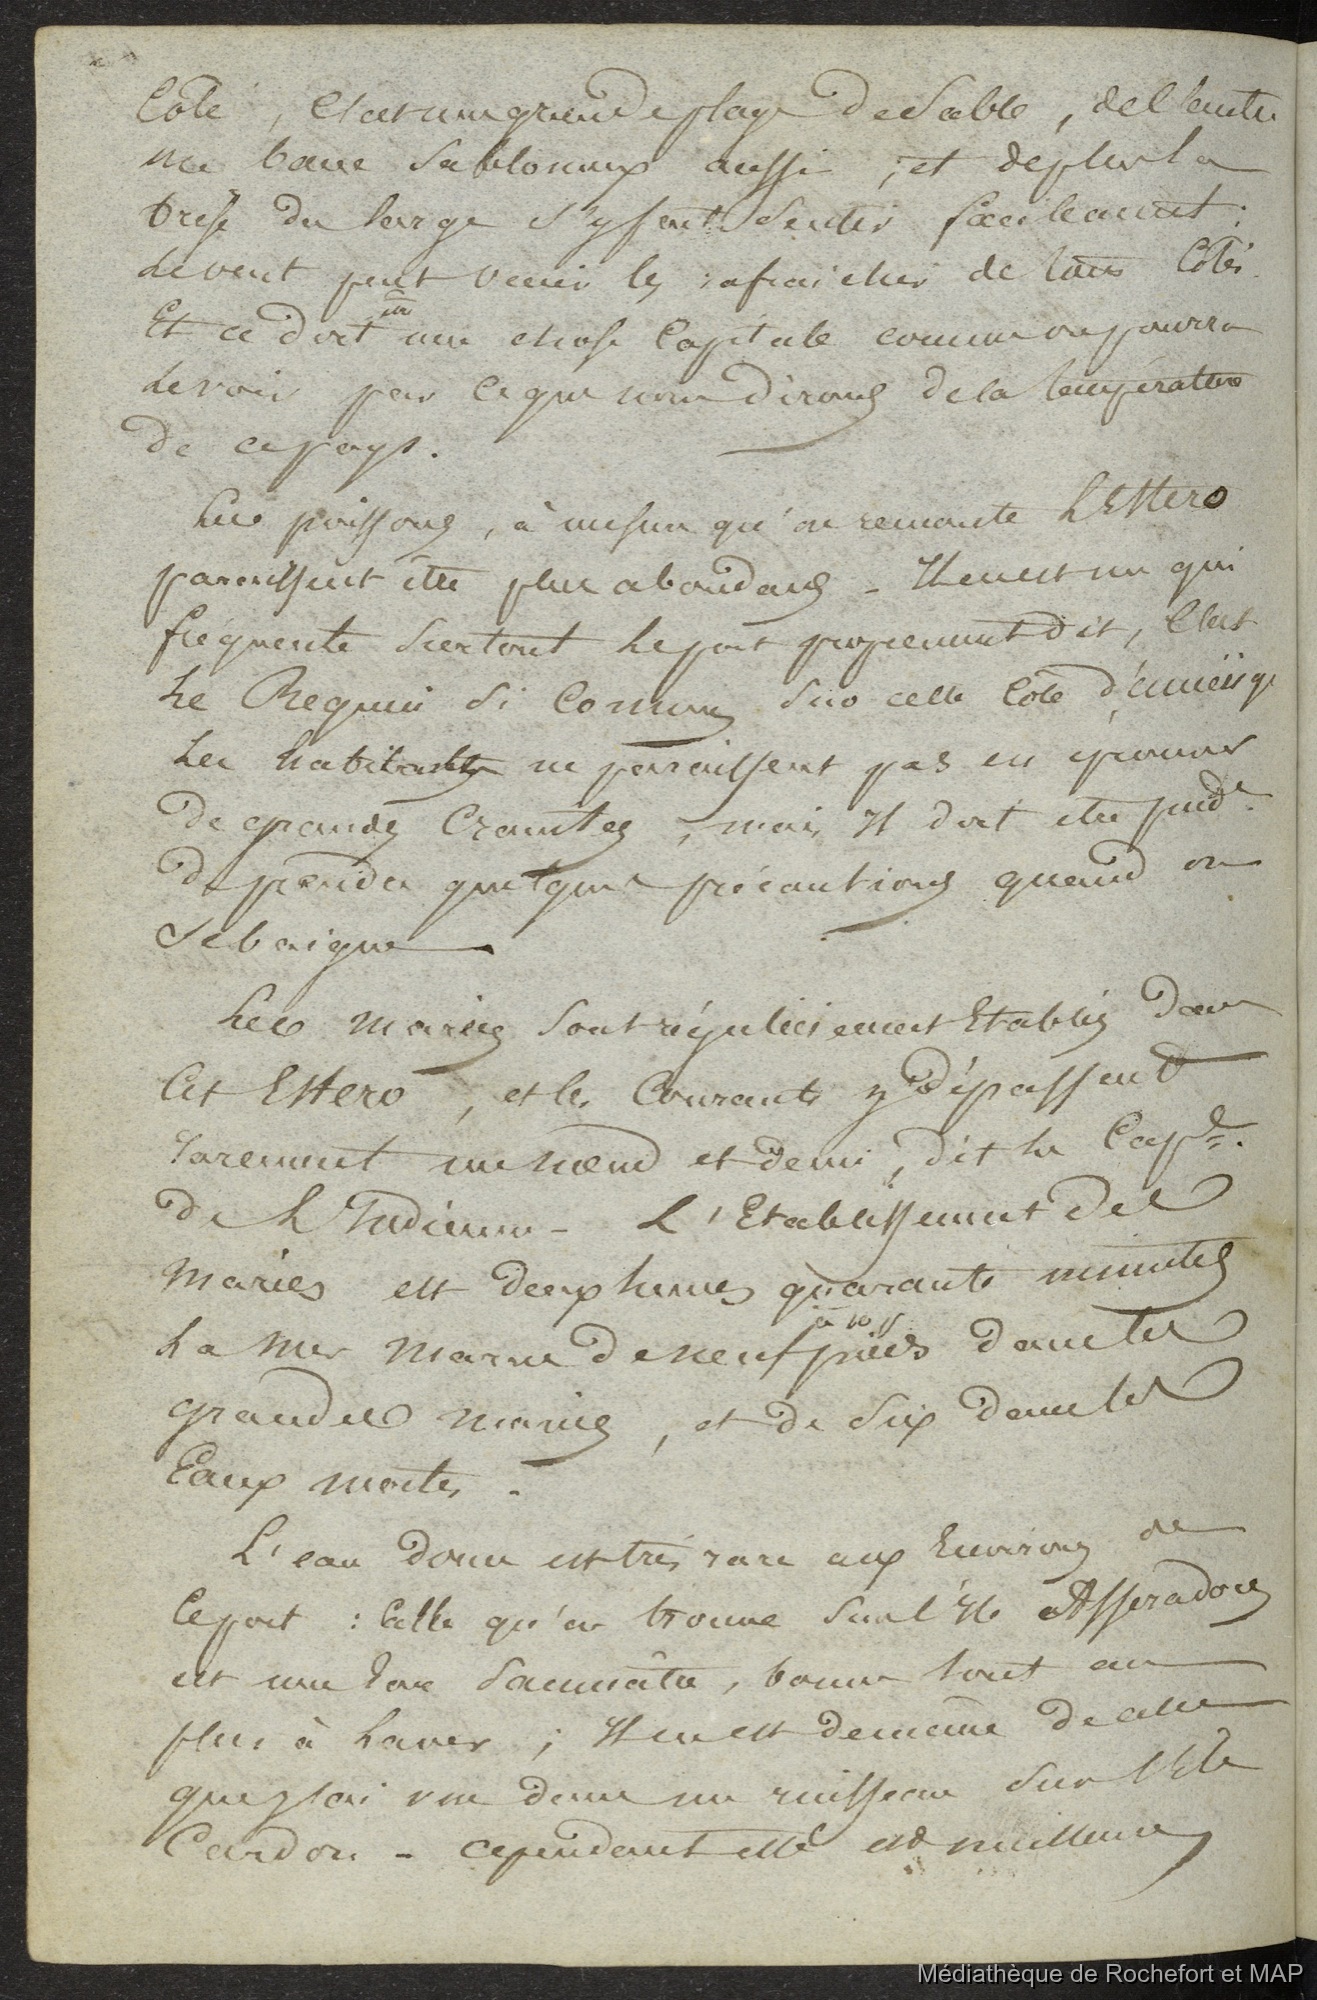 Côté, c'est une grande plage de Sable, de l'autre
un banc Sabloneux aussi, et de plus la
brise du large s'y fait Sentir facilement;
le vent peut venir les rafraichir de tous Côtés.
Et ce doit être une chose Capitale comme on pourra
le voir par ce que nous dirons de la température
de ce pays.
Les poissons, à mesure qu'on remonte L'Estero
paraissent être plus abondans - Il en est un qui
fréquente Surtout le port proprement dit, C'est
Le Requin si Comun sur cette Côte d'amérique
Les habitants ne paraissent pas en éprouver
de grandes Craintes, mais Il doit être prudt.
de prendre quelques précautions quand on
se baigne
Les marées Sont régulièrement Etablies dans
Cet Estero, et les Courants y dépassent
rarement un nœud et demi, dit le Cape.
de L'Indienne - L'Etablissement des
marées est deux heures quarante minutes
La mer marne de neuf à 10 p. pieds dans les
grandes marées, et de Six dans les
Eaux mortes.
L'eau douce est très rare aux Environs de
Ce port : Celle qu'on trouve Sur l'Ile Asseradores
est une Eau Saumâtre, bonne tout au
plus à Laver ; Il en est de même de celle
que j'ai vue dans un ruisseau Sur l'Ile
Cardon - cependant elle est meilleure,
Médiathèque de Rochefort et MAP